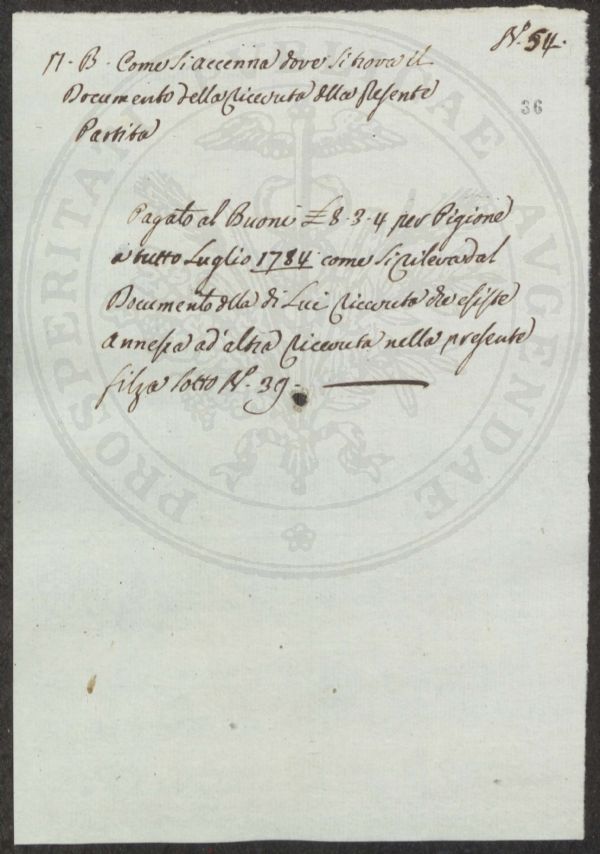 N.º 54.
36
N. B. Come si accenna dove si trova il
Documento della Ricevuta dlla presente
Partita
Pagato al Buoni £ 8. 3. 4 per Pigione
a tutto Luglio 1784 come si rileva dal
Documento dlla di Lui Ricevuta che esiste
annessa ad' altra Ricevuta nella presente
filza sotto N.º 39.
PROSPERITATI AVGENDAE